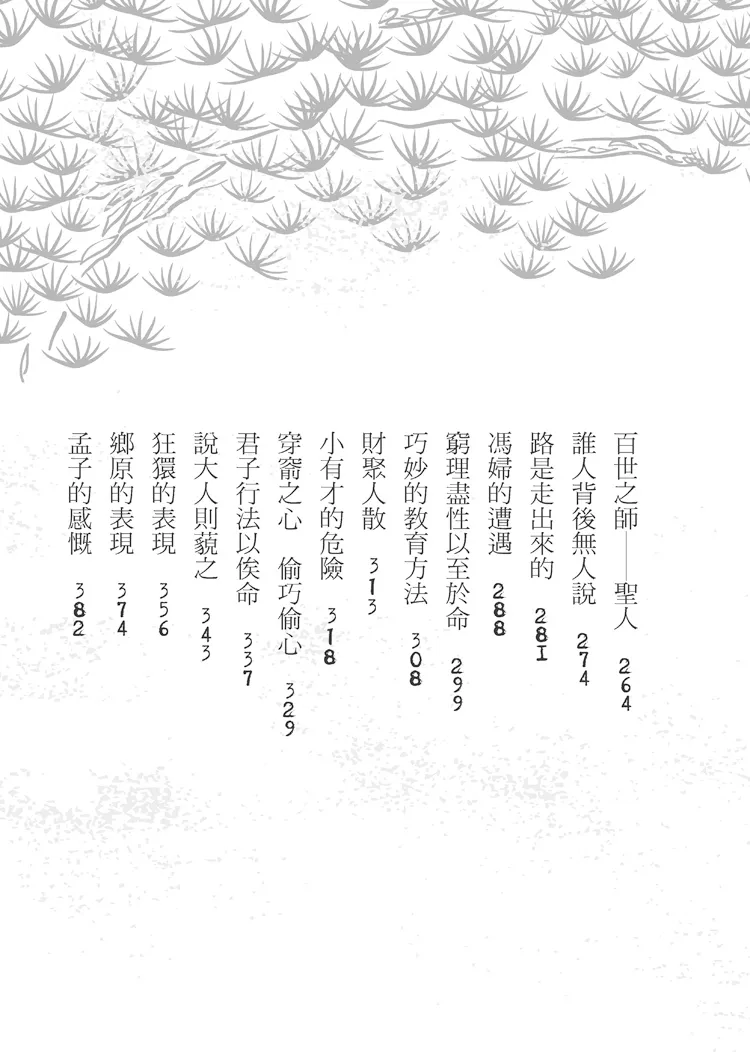 百世之師──聖人 264
誰人背後無人說 274
路是走出來的 281
馮婦的遭遇 288
窮理盡性以至於命 299
巧妙的教育方法 308
財聚人散 313
小有才的危險 318
穿窬之心 偷巧偷心 329
君子行法以俟命 337
說大人則藐之 343
狂獧的表現 356
鄉原的表現 374
孟子的感慨 382